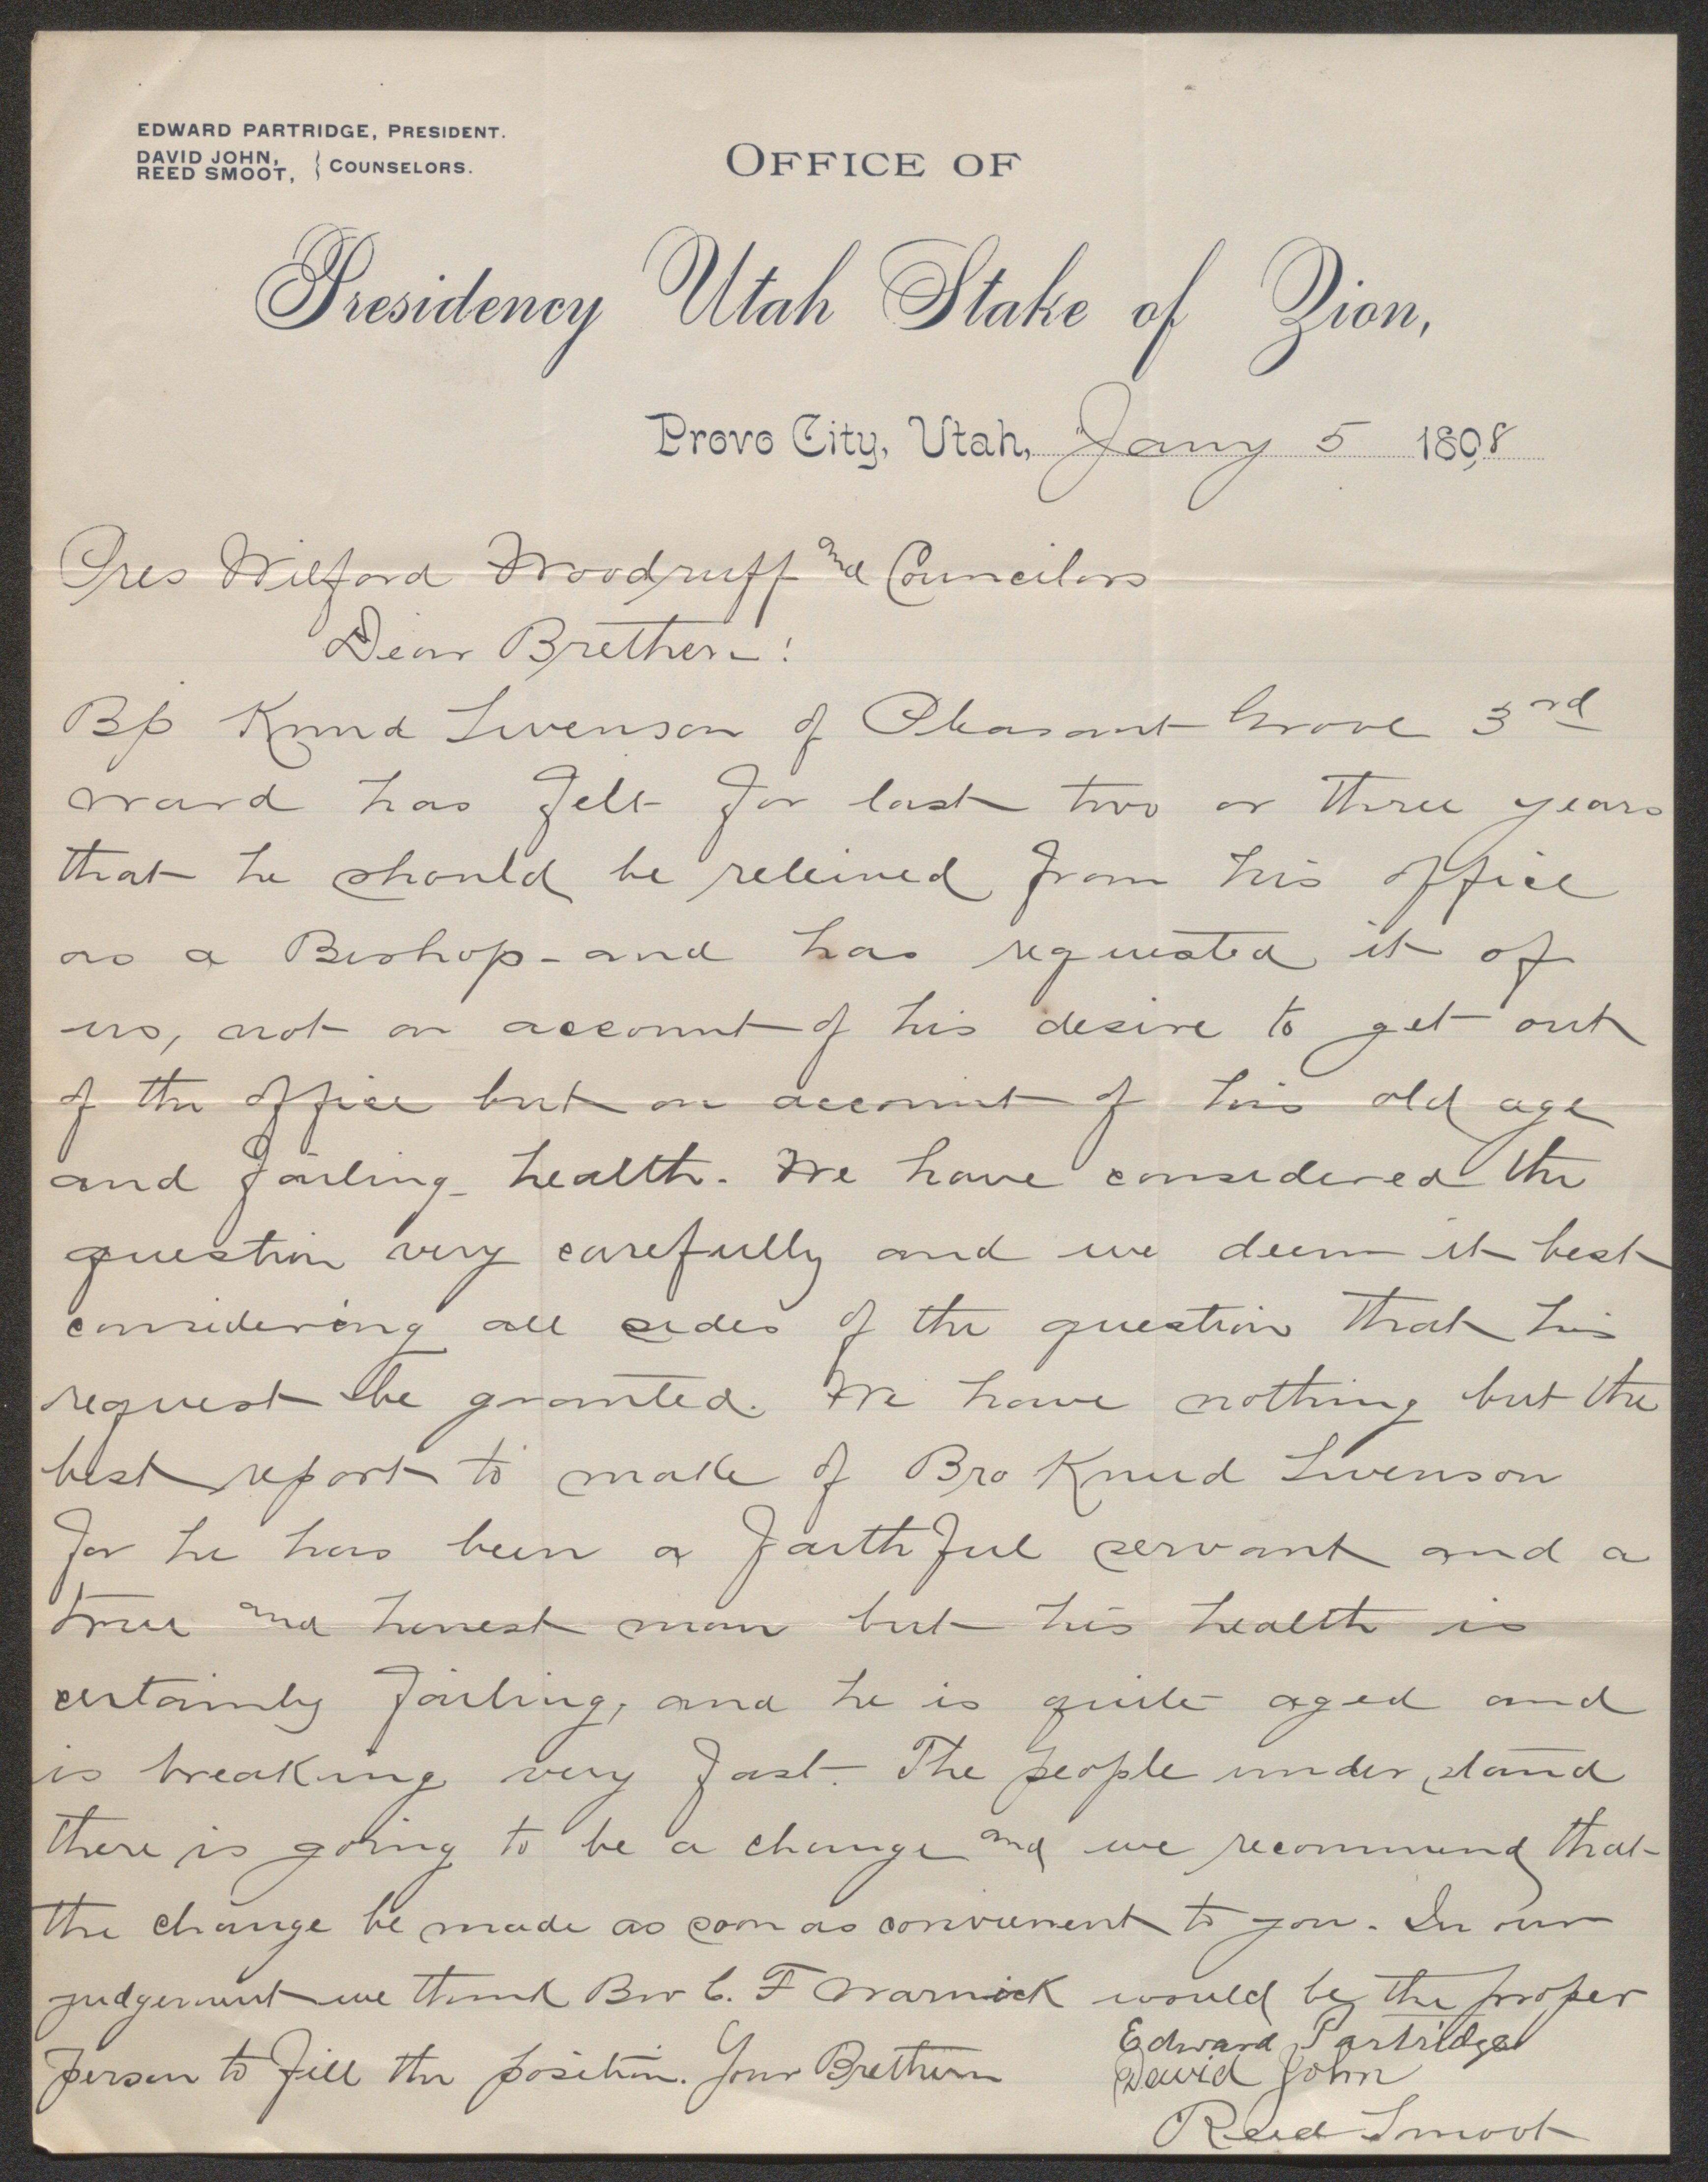 EDWARD PARTRIDGE, PRESIDENT.
DAVID JOHN,
REED SMOOT, } COUNSELORS.
OFFICE OF
Presidency Utah Stake of Zion,
Provo City, Utah, Jany 5 1898
Pres Wilford Woodruff and Councilors
Dear Brethern!
Bp Knud Swenson of Pleasant Grove 3rd
ward has felt for last two or three years
that he should be releived from his office
as a Bishop - and has requested it of
us, not on account of his desire to get out
of the office but on account of his old age
and failing health. We have considered the
question very carefully and we deem it best
considering all sides of the question that his
request be granted. We have nothing but the
best report to make of Bro Knud Swenson
for he has been a faithful servant and a
true and honest man but his health is
certainly failing, and he is quite aged and
is breaking very fast. The people understand
there is going to be a change and we recommend that
the change be made as soon as convienent to you. In our
judgement we think Bro C. F Warnick would be the proper
person to fill the position. Your Brethern
Edward Partridge
David John
Reed Smoot